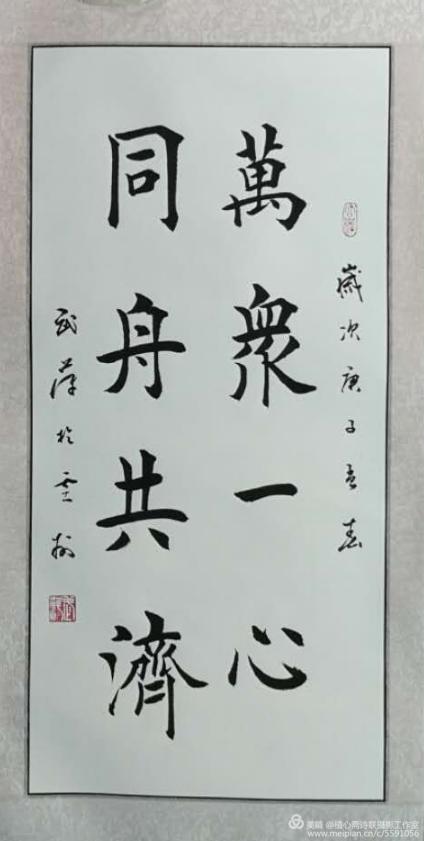 歲次庚子孟春
萬衆一心
同舟共濟
武萍於雲樹
美篇 @植心斋诗联摄影工作室
www.meipian.cn/c/5591056